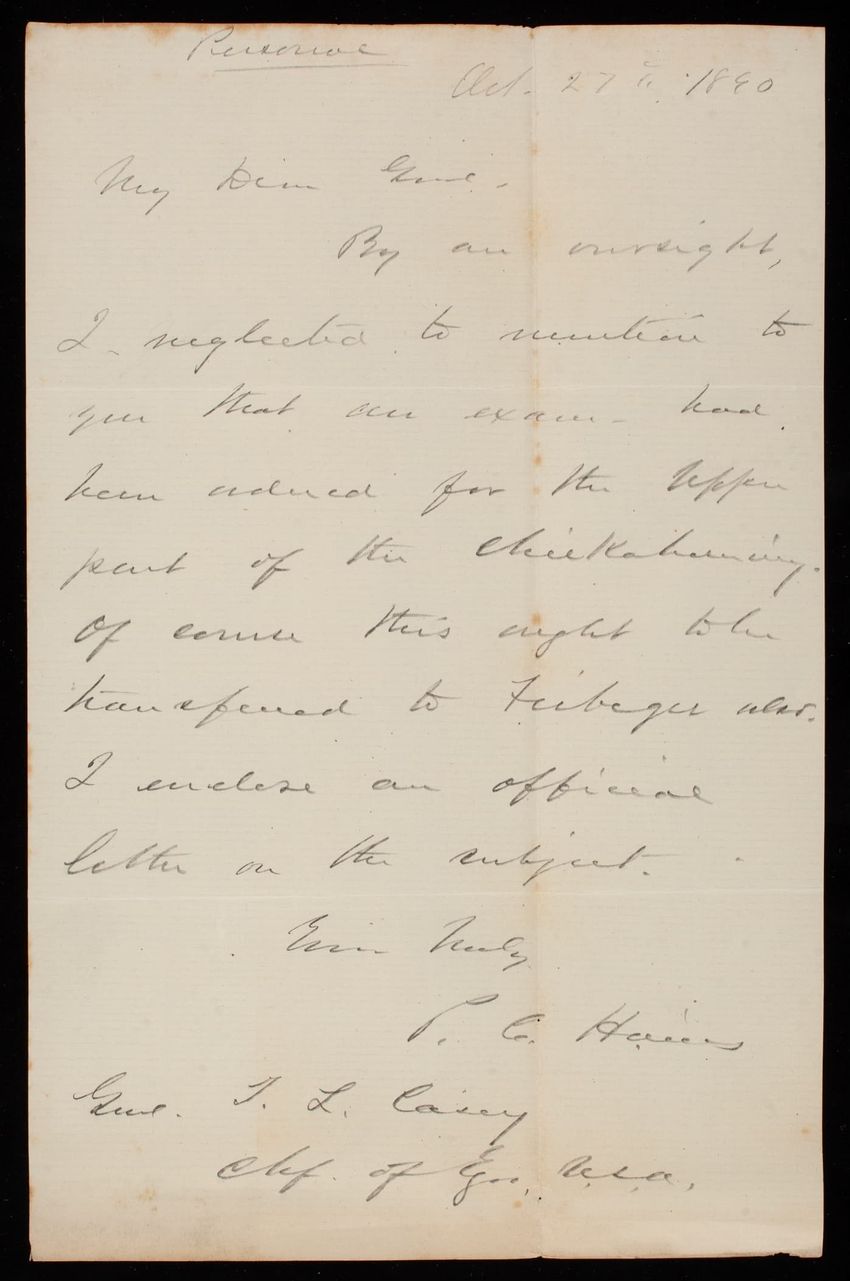 Personal
Oct. 27th 1890
My Dear Genl.
By an oversight,
I neglected to mention to
you that an exam- had
been ordered for the Upper
part of the Chickahominy.
Of course this ought to be
transferred to Fiebeger also.
I enclose an official
letter on the subject.
Yours Truly
P. C. Hains
Genl. T. L. Casey
Chf. of Egrs, U.S.A.